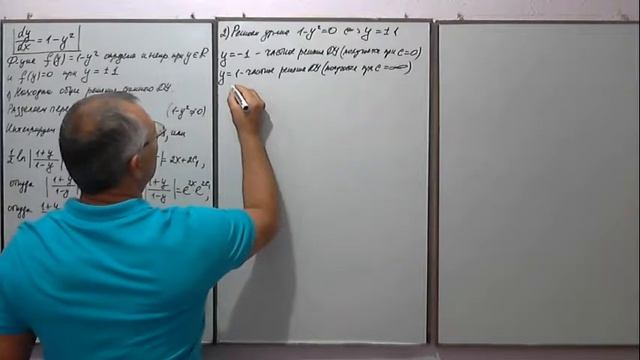 dy/dx = 1-y²
Ф-ция f(y)=1-y² определена и непр при y∈R
и f(y)=0 при y=±1
1) Находим общее решение данного ДУ.
Разделяем пере (1-y²≠0)
Интегрируем , или
1/2 ln|1+y/1-y| = 2x+2C₁,
откуда |1+y/1-y| = e²ˣ e²ᶜ¹,
откуда 1+y
2) Решаем ур-ние 1-y²=0 <=> y=±1
y=-1 - частное решение ДУ (получается при C=0)
y=1 - частное решение ДУ (получается при C=∞)